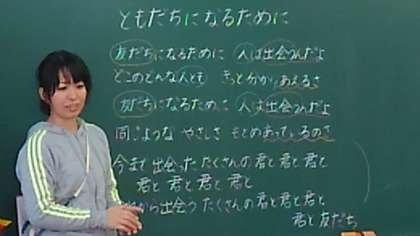 ともだちになるために
友だちになるために 人は出会うんだよ
どこのどんな人とも きっと分かりあえるさ
友だちになるために 人は出会うんだよ
同じような やさしさ もとめあっているのさ
今まで出会った たくさんの 君と 君と 君と
君と 君と 君と 君と
から出会う たくさんの 君と 君と 君と
君と 友だち